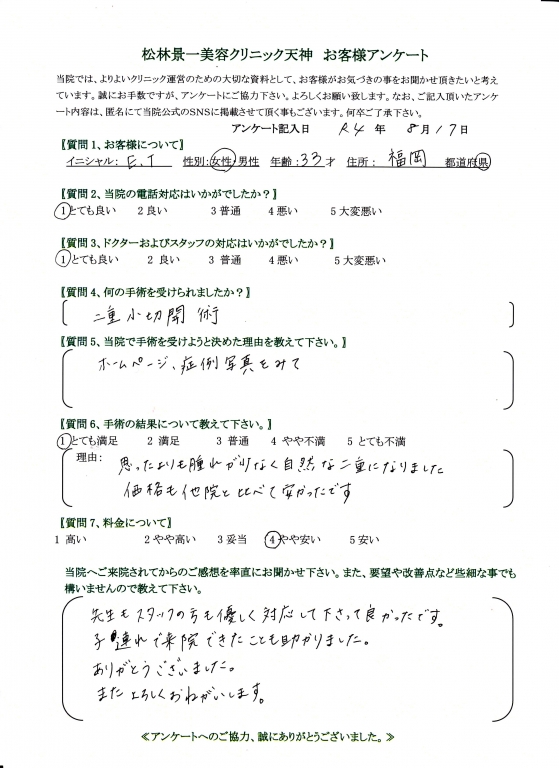 松林景一美容クリニック天神　お客様アンケート
当院では、よりよいクリニック運営のための大切な資料として、お客様がお気づきの事をお聞かせ頂きたいと考え
ています。誠にお手数ですが、アンケートにご協力下さい。よろしくお願い致します。なお、ご記入頂いたアンケ
ート内容は、匿名にて当院公式のSNSに掲載させて頂く事もございます。何卒ご了承下さい。
アンケート記入日　R4 年　8月 17日
【質問1、お客様について】
イニシャル： E.T　性別：女性・男性　年齢：33才　住所：　福岡　都道府県
【質問2、当院の電話対応はいかがでしたか？】
1とても良い　2 良い　3 普通　4 悪い　5 大変悪い
【質問3、ドクターおよびスタッフの対応はいかがでしたか？】
1とても良い　2 良い　3 普通　4 悪い　5 大変悪い
【質問4、何の手術を受けられましたか？】
二重小切開術
【質問5、当院で手術を受けようと決めた理由を教えて下さい。】
ホームページ、症例写真をみて
【質問6、手術の結果について教えて下さい。】
1とても満足　2 満足　3 普通　4 やや不満　5 とても不満
理由：　思ったよりも腫れが少なく自然な二重になりました
価格も他院と比べて安かったです
【質問7、料金について】
1 高い　2 やや高い　3 妥当　4やや安い　5 安い
当院へご来院されてからのご感想を率直にお聞かせ下さい。また、要望や改善点など些細な事でも
構いませんので教えて下さい。
先生もスタッフの方も優しく対応して下さって良かったです。
子連れで来院できたことも助かりました。
ありがとうございました。
またよろしくおねがいします。
≪アンケートへのご協力、誠にありがとうございました。≫